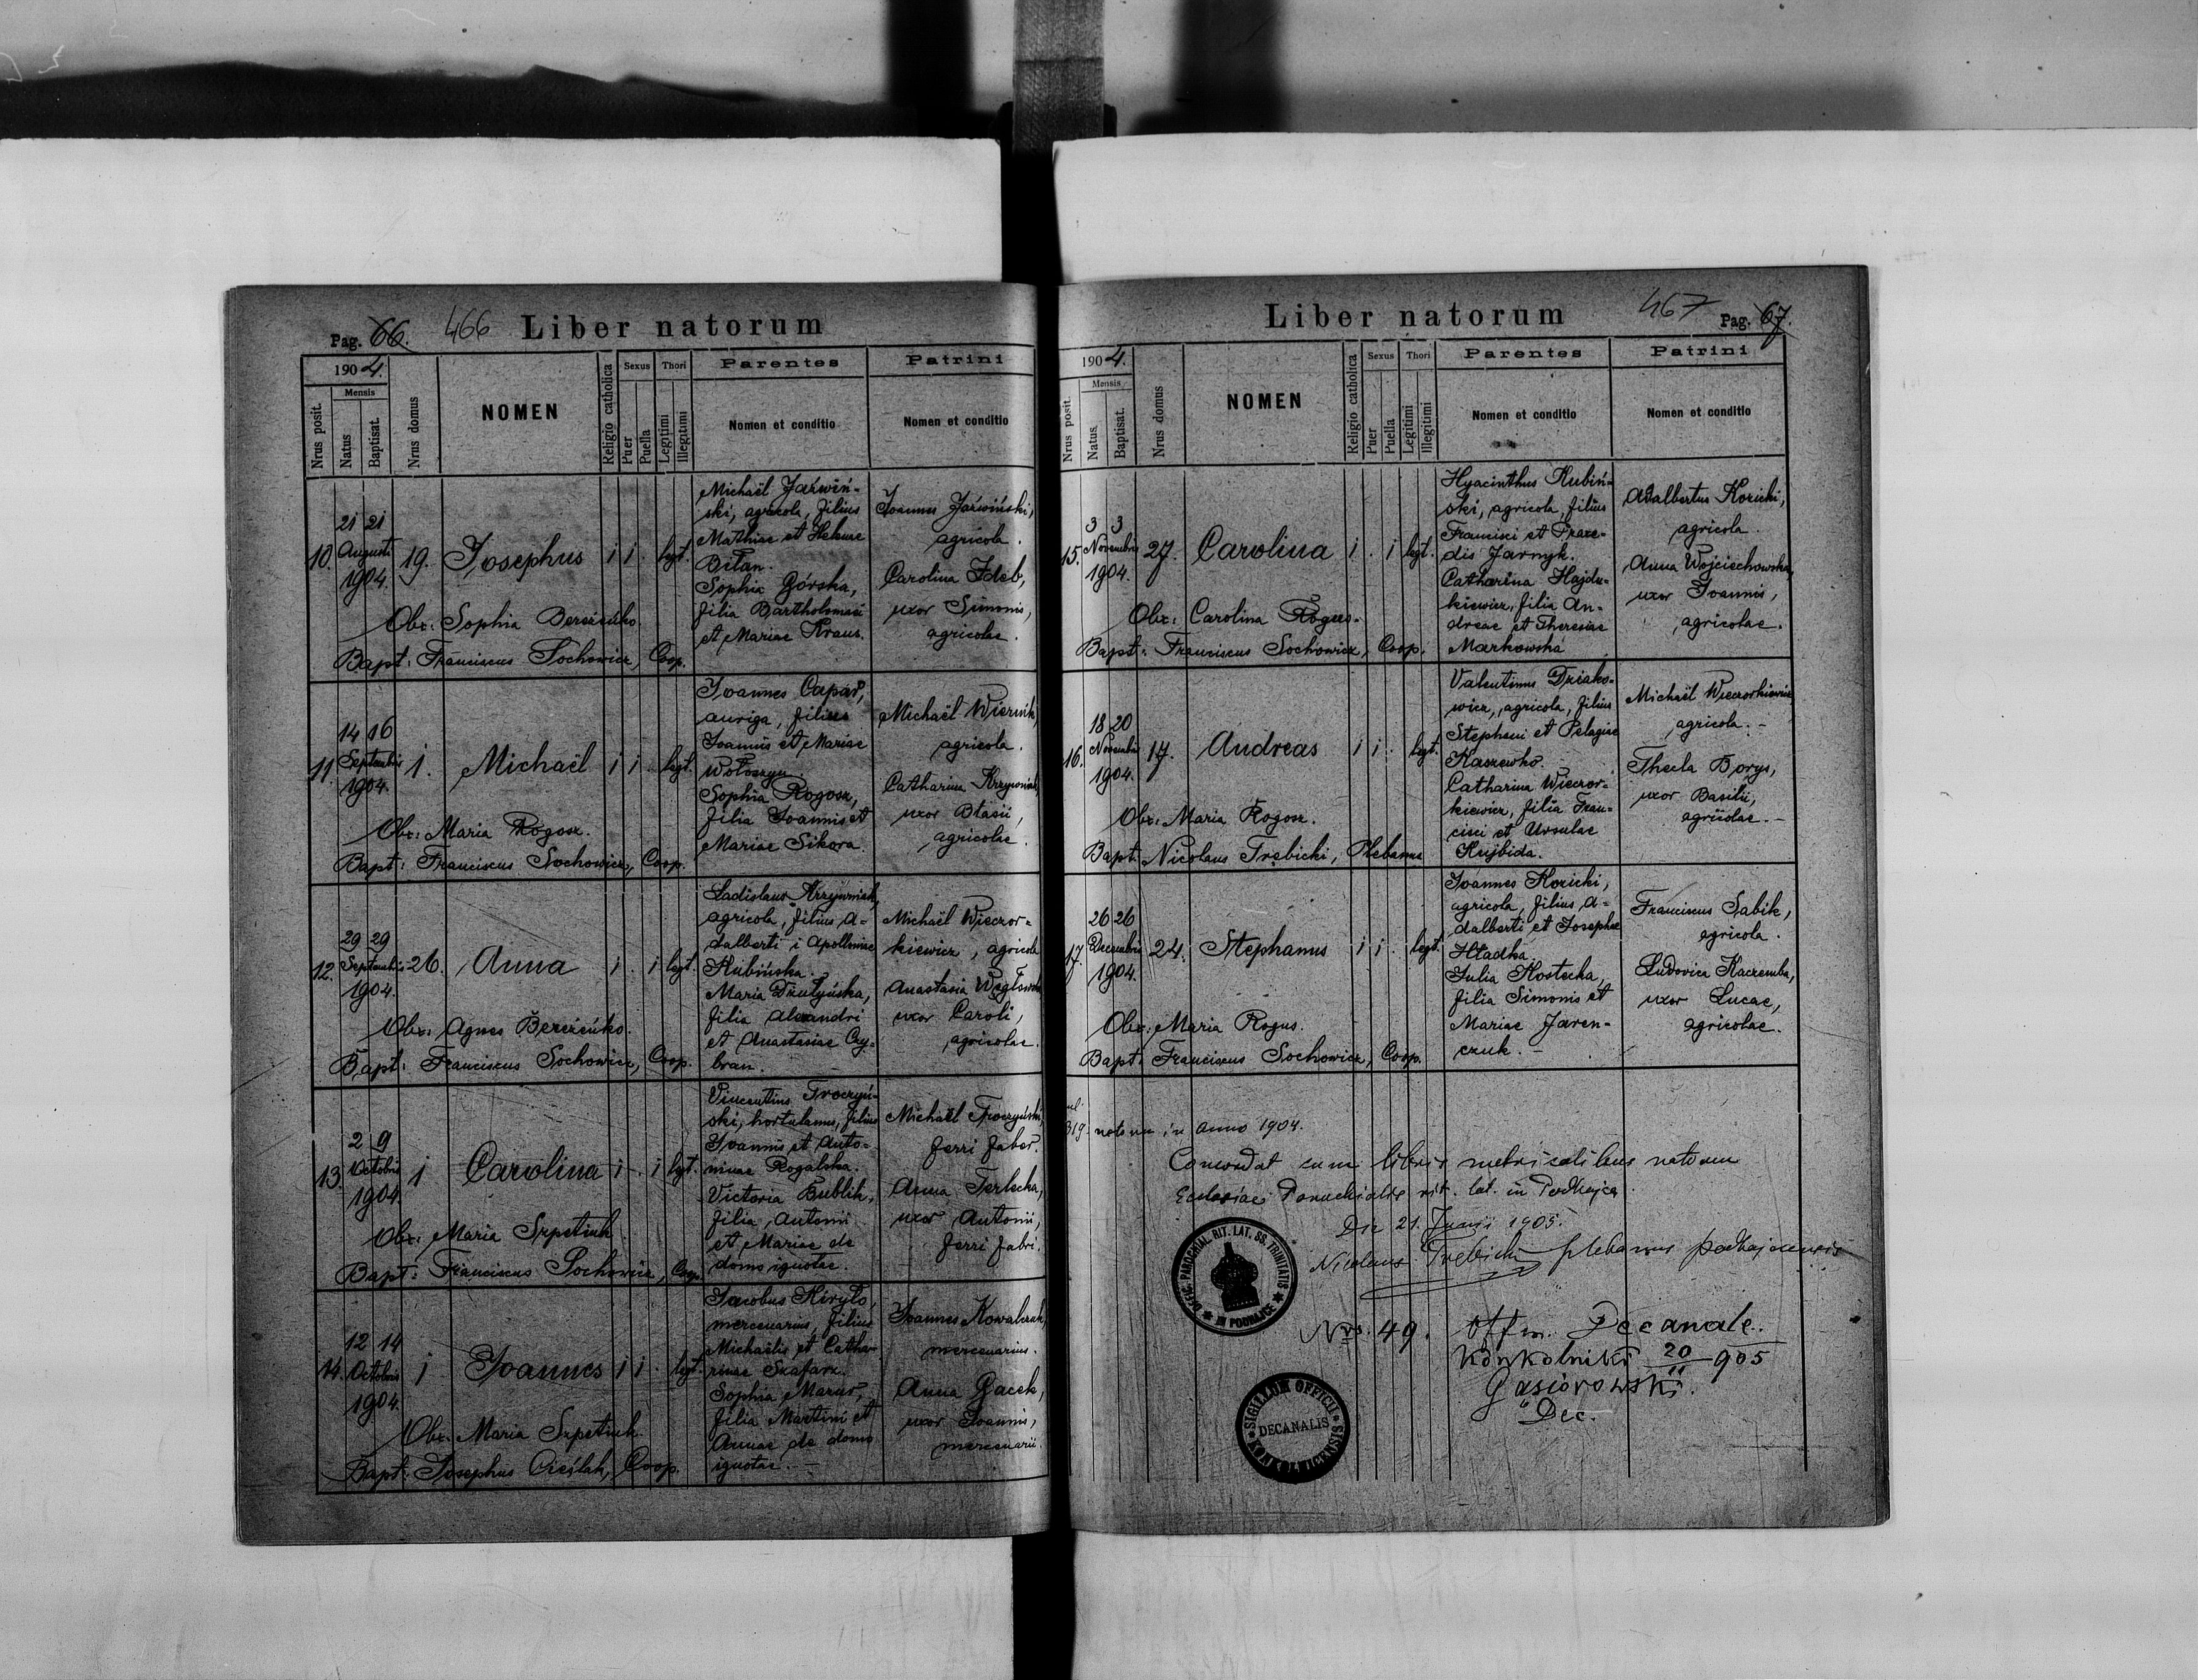 Pag. 66. 466 Liber natorum
1904.
Nrus posit.
Mensis
Natus
Baptisat.
Nrus domus
NOMEN
Religio catholica
Sexus
Puer
Puella
Thori
Legitimi
Illegitimi
Parentes
Nomen et conditio
Patrini
Nomen et conditio
10.
21 21
Augusti
1904.
19.
Josephus
i i . legt.
Michaël Jarwiń-
ski, agricola, filius
Mathiae et Helenae
Bilan.
Sophia Górska,
filia Bartholomaei
et Mariae Kraus.
Joannes Jarwiński,
agricola.
Carolina Zdeb,
uxor Simonis,
agricolae.
Obx: Sophia Bereżańko.
Bapt: Franciscus Sochowicz, Coop.
11.
14 16
Septembris
1904.
1.
Michaël
i i . legt.
Joannes Capar,
auriga, filius
Joannis et Mariae
Wołoszyn
Sophia Rogosz,
filia Joannis et
Mariae Sikora.
Michaël Wiernik,
agricola.
Catharina
uxor Blasii,
agricolae.
Obx: Maria Rogosz.
Bapt: Franciscus Sochowicz, Coop.
12.
29 29
Septembris
1904.
26.
Anna
i . i legt.
Ladislaus Krzywniak,
agricola, filius A-
dalberti i Apolloniae
Kubińska.
Maria Dżułyńska,
filia Alexandri
et Anastasiae Cy-
bran.
Michaël Wieczor-
kiewicz, agricola
Anastasia
uxor Caroli,
agricolae.
Obx: Agnes Bereżańko.
Bapt: Franciscus Sochowicz, Coop.
13.
2 9
Octobris
1904.
1
Carolina
i . i legt.
Vincentius Troczyń-
ski, hortulanus, filius
Joannis et Anto-
ninae Rogalska.
Victoria Bublik,
filia Antonii
et Mariae de
domo ignotae.
Michaël Troczyński,
ferri faber.
Anna Terlecka,
uxor Antonii,
ferri fabri.
Obx: Maria Szpetiuk
Bapt: Franciscus Sochowicz, Coop.
14.
12 14
Octobris
1904.
1
Joannes
i i . legt.
Jacobus Kiryło,
mercenarius, filius
Michaëlis et Catha-
rinae Szafarz.
Sophia Mazur,
filia Martini et
Annae de domo
ignotae. –
Joannes Kowalczuk,
mercenarius.
Anna Gacek,
uxor Joannis,
mercenarii.
Obx. Maria Szpetiuk.
Bapt: Josephus Cieślak, Coop.
Liber natorum 467 Pag. 67.
1904.
Nrus posit.
Mensis
Natus.
Baptisat.
Nrus domus
NOMEN
Religio catholica
Sexus
Puer
Puella
Thori
Legitimi
Illegitimi
Parentes
Nomen et conditio
Patrini
Nomen et conditio
15.
3 3
Novembris
1904.
27.
Carolina
i . i legt.
Hyacinthus Kubiń-
ski, agricola, filius
Francisci et Praxe-
dis Jarmyk.
Catharina Hajdu-
kiewicz, filia An-
dreae et Theresiae
Markowska
Adalbertus Kozicki,
agricola.
Anna Wojciechowska,
uxor Joannis,
agricolae.
Obx: Carolina
Bapt: Franciscus Sochowicz, Coop.
16.
18 20
Novembris
1904.
17.
Andreas
i i . legt.
Valentinus Dziako-
wicz, agricola, filius
Stephani et Pelagiae
Kaszewko.
Catharina Wieczor-
kiewicz, filia Fran-
cisci et Ursulae
Kujbida.
Michaël Wieczorkiewicz
agricola. –
Thecla Borys,
uxor Basilii,
agricolae. –
Obx: Maria Rogosz.
Bapt: Nicolaus Trębicki, Plebanus
17.
26 26
Decembris
1904.
24.
Stephanus
i i . legt.
Joannes Kozicki,
agricola, filius A-
dalberti et Josephae
Hładka.
Julia Kostecka,
filia Simonis et
Mariae Jaren-
czuk. –
Franciscus Sabik,
agricola.
Ludovica Kaczemba,
uxor Lucae,
agricolae.
Obx: Maria Rogus.
Bapt: Franciscus Sochowicz, Coop.
319. natorum in anno 1904.
Concordat cum libris metricalibus natorum
Ecclesiae Parochialis rit. lat. in Podhajce
Die 21. Junii 1905.
Nicolaus Trębicki plebanus podhajcensis
OFFIC. PAROCHIAL. RIT. LAT. SS. TRINITATIS
IN PODHAJCE
Nrs. 49. Offm. Decanale.
Konkolniki 20/11 905
Gąsiorowski.
Dec.
SIGILLUM OFFICII
DECANALIS
KONKOLNICENSIS